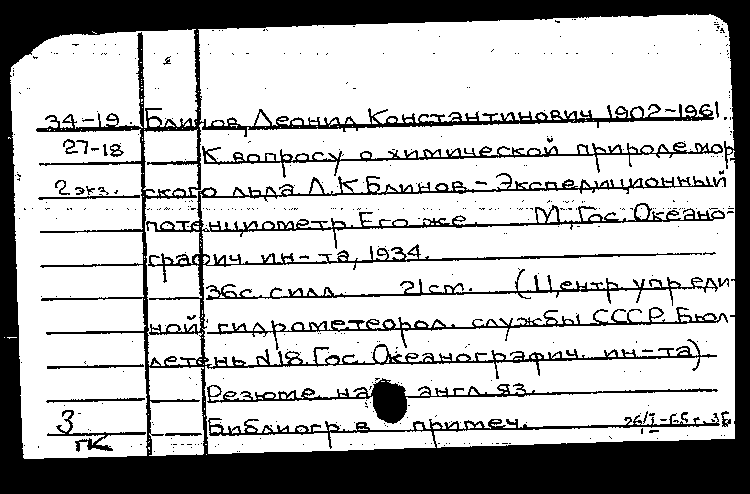 34-19. Блинов, Леонид Константинович, 1902-1961.
27-18 К вопросу о химической природе мор
2 экз. ского льда Л.К Блинов - Экспедиционный
потенциометр. Его же М., Гос. Океано-
графич. ин-та, 1934.
36с. с илл. 21 cm. (Центр. упр. еди-
ной гидрометеорол. службы СССР. Бюл-
летень №18. Гос. Океанографич. ин-та)
Резюме на англ. яз.
3 Библиогр. в примеч.
ГК